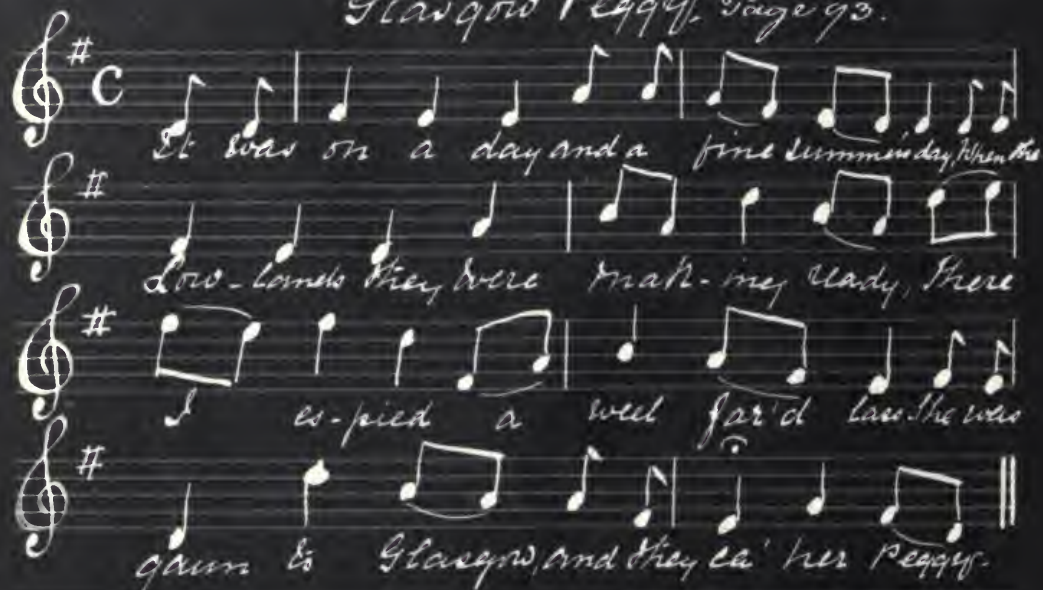 Glasgow Peggy. Page 93.
It was on a day and a fine summer's day, When the
Low-lands they were mak-ing ready, There
I es-pied a weel far'd lass She was
gaun to Glasgow, and they ca' her Peggy.